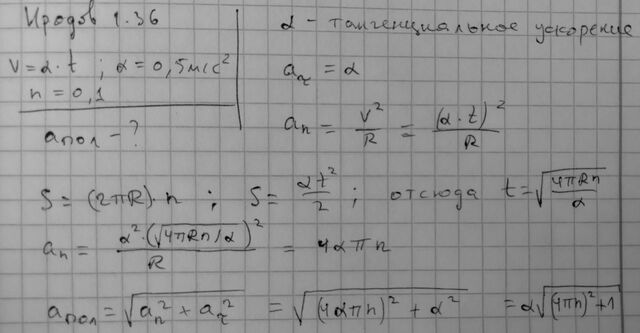 Иродов 1.36
v = α · t ; α = 0,5 м/с²
n = 0,1
aпол - ?
α - тангенциальное ускорение
aτ = α
an = v²/R = (α · t)²/R
S = (2πR) · n ; S = αt²/2 ; отсюда t = √(4πRn/α)
an = α² · (√(4πRn/α))²/R = 4απn
aпол = √(an² + aτ²) = √((4απn)² + α²) = α√((4πn)² + 1)